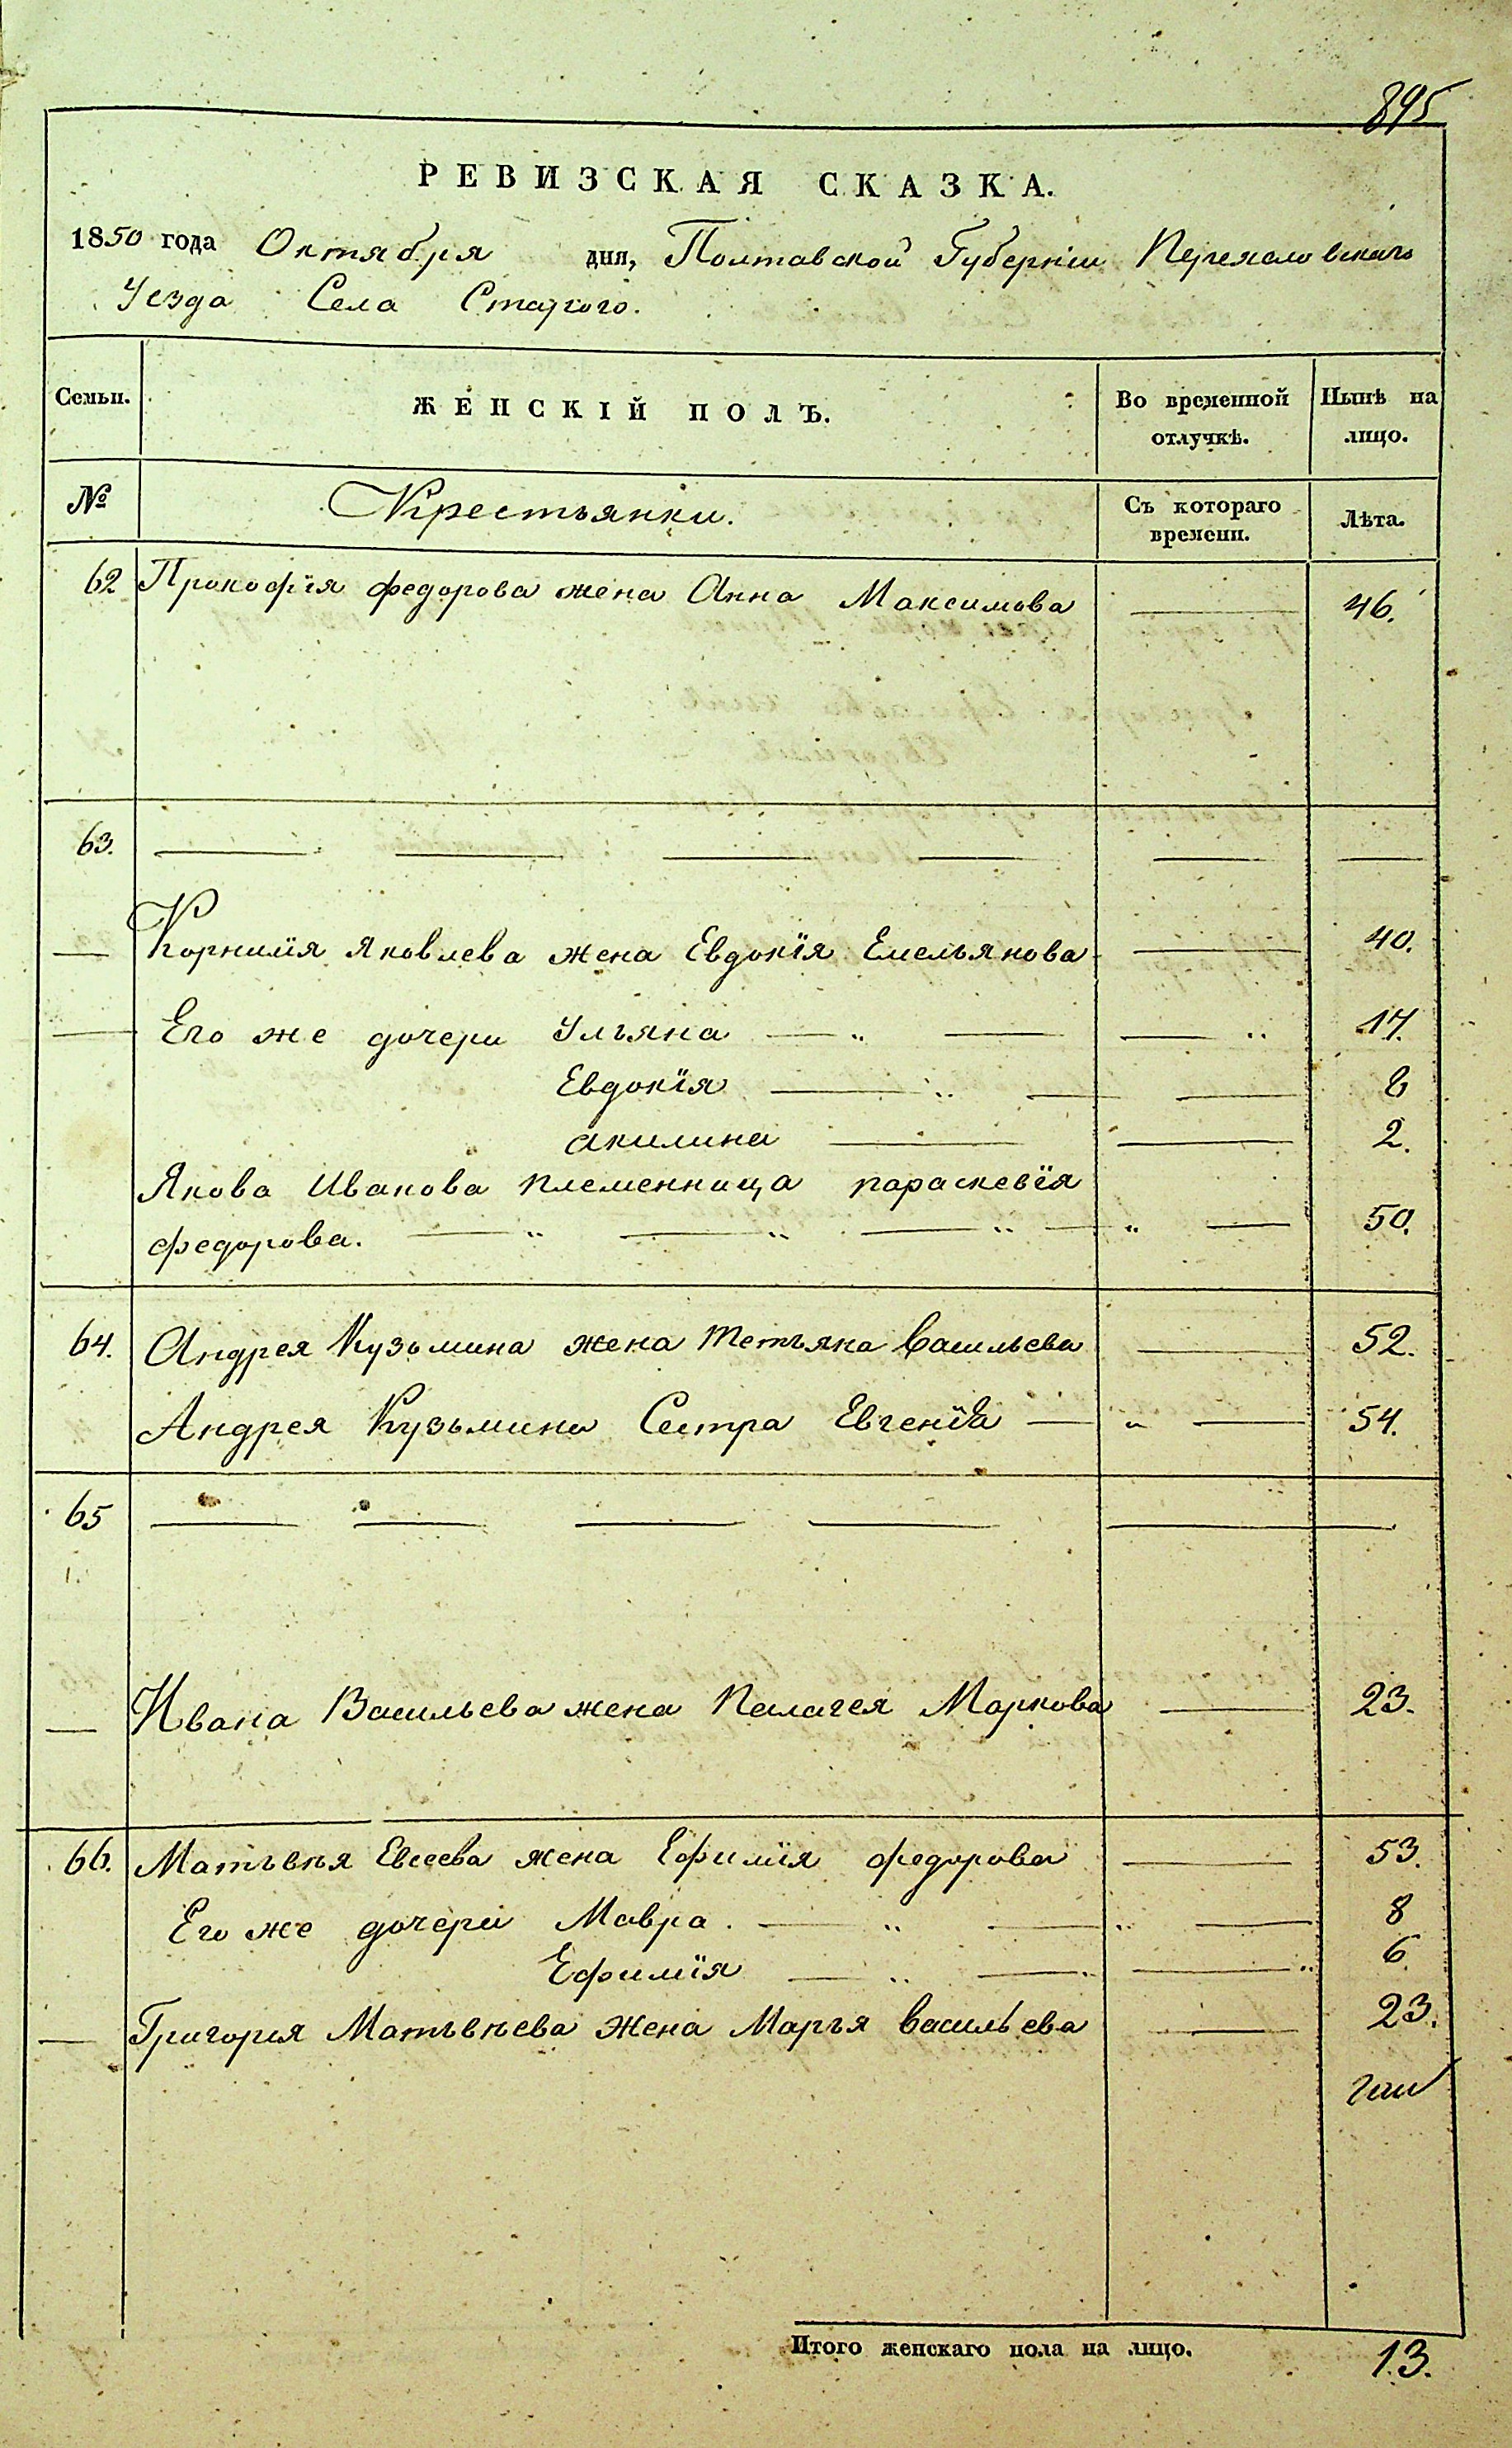 895
РЕВИЗСКАЯ СКАЗКА.
1850 года Октября дня, Полтавской Губернiи Переяславскаго
Уезда Села Старого.
Семьи. ЖЕНСКІЙ ПОЛЪ. Во временной отлучкѣ. Нынѣ на лицо.
№ Крестьянки. Съ котораго времени. Лѣта.
62 Прокофія федорова жена Анна Максимова — 46.
63. — — — — — —
— Корнилія Яковлева жена Евдокія Емельянова — 40.
— Его же дочери Ульяна — „ — — „ 17.
Евдокія — „ — — 8
акилина — — 2.
Якова Иванова племенница параскевія
федорова. — „ — „ — „ — „ — 50.
64. Андрея Кузьмина жена Тетьяна Васильева — 52.
Андрея Кузьмина Сестра Евгенія — „ — 54.
65 — — — — —
— Ивана Васильева жена Пелагея Маркова — 23.
66. Матвѣя Евсеева жена Ефимія федорова — 53.
Его же дочери Мавра. — „ — „ — 8
Ефимія — „ — „ — „ 6.
— Григорія Матвѣева жена Марья Васильева — 23.
Итого женскаго пола на лицо. 13.